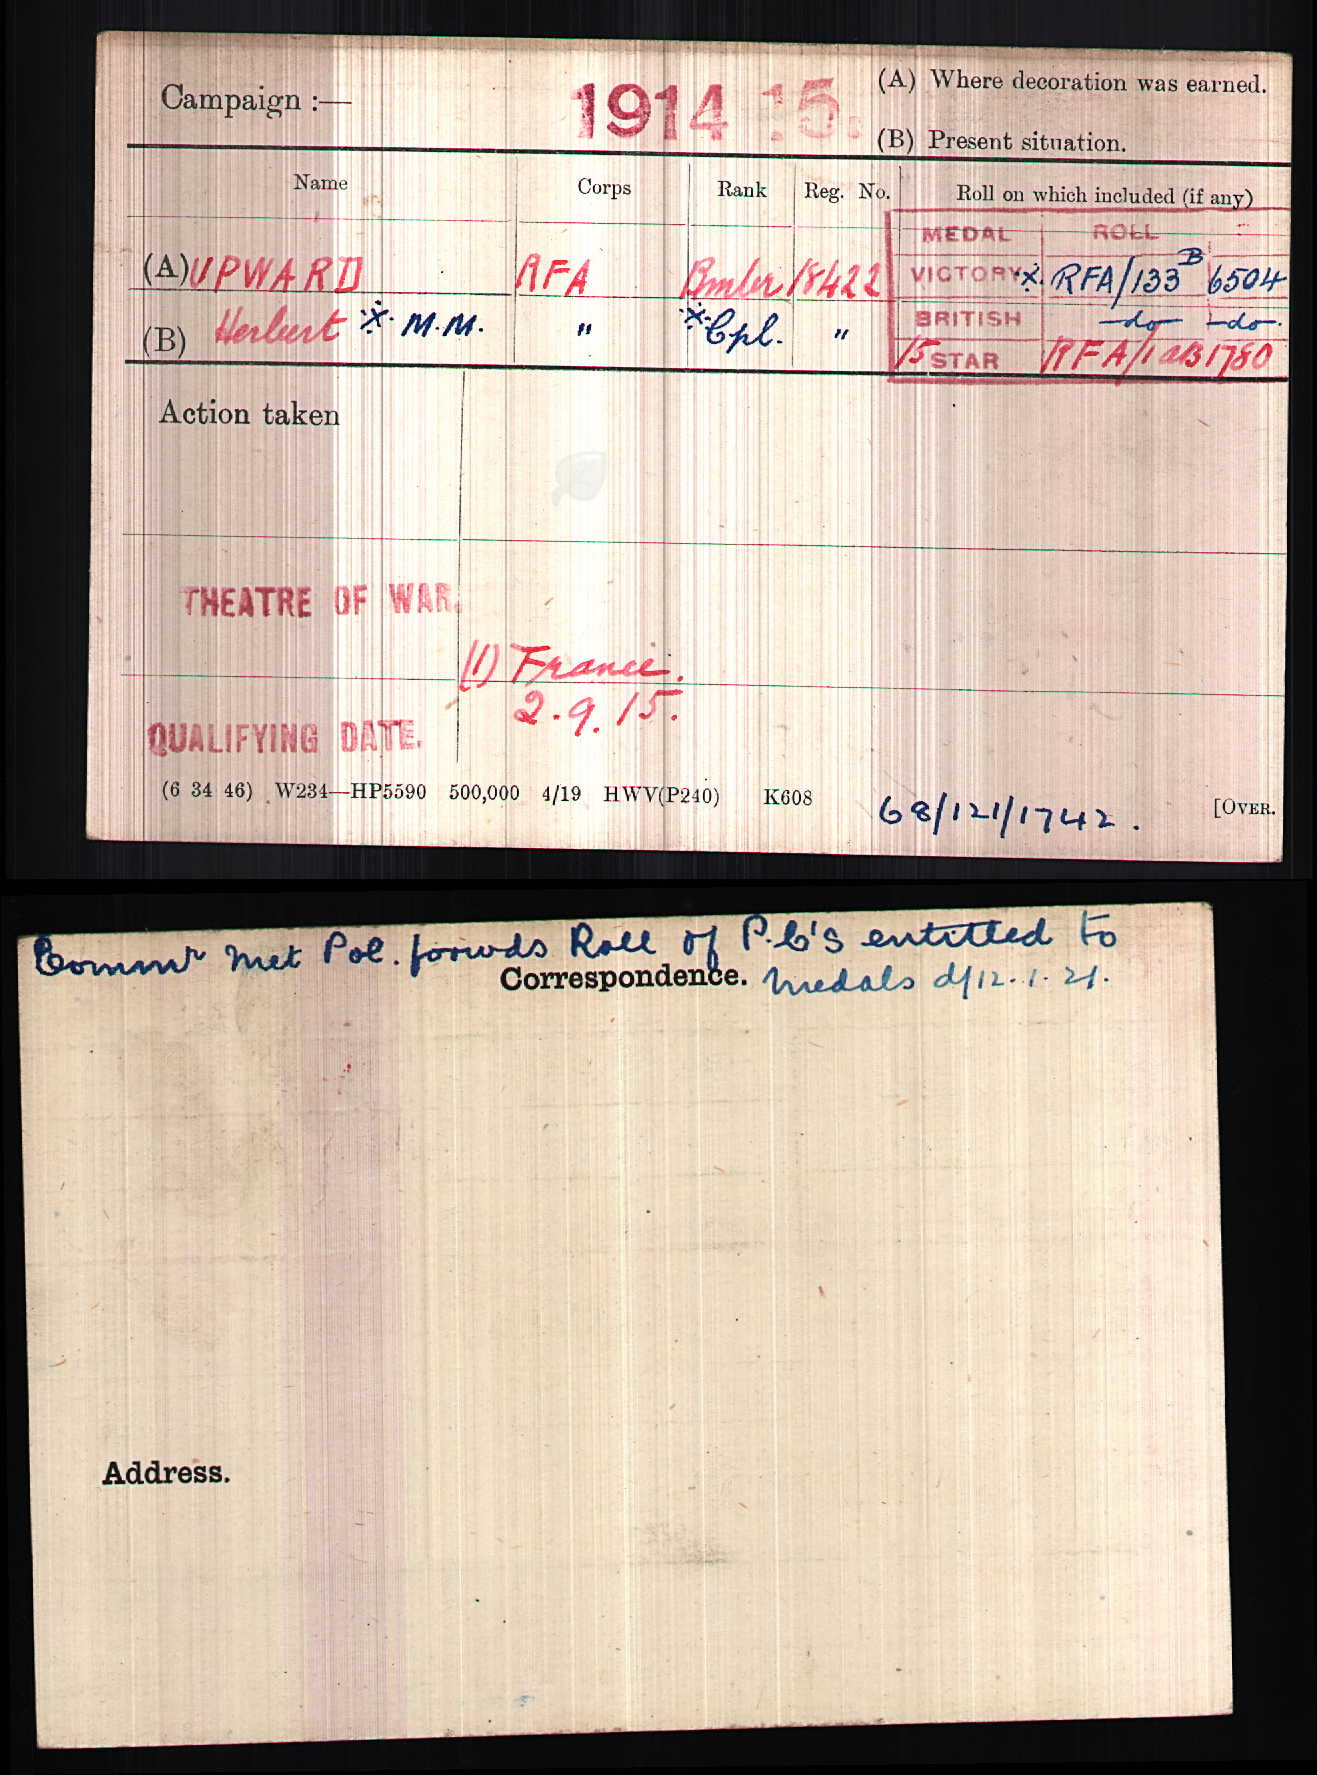 Campaign :— 1914 15. (A) Where decoration was earned.
(B) Present situation.
Name Corps Rank Reg. No. Roll on which included (if any)
MEDAL ROLL
(A) UPWARD RFA Bmbr 18422 VICTORY ※ RFA/133 B 6504
(B) Herbert ※ M.M. " ※ Cpl. " BRITISH —do— —do—.
15 STAR RFA/1 AB 1780
Action taken
THEATRE OF WAR.
(1) France.
2.9.15.
QUALIFYING DATE.
(6 34 46) W234—HP5590 500,000 4/19 HWV(P240) K608
68/121/1742. [OVER.
Commr Met Pol. forwds Roll of P.C's entitled to
Correspondence. Medals d/12.1.21.
Address.